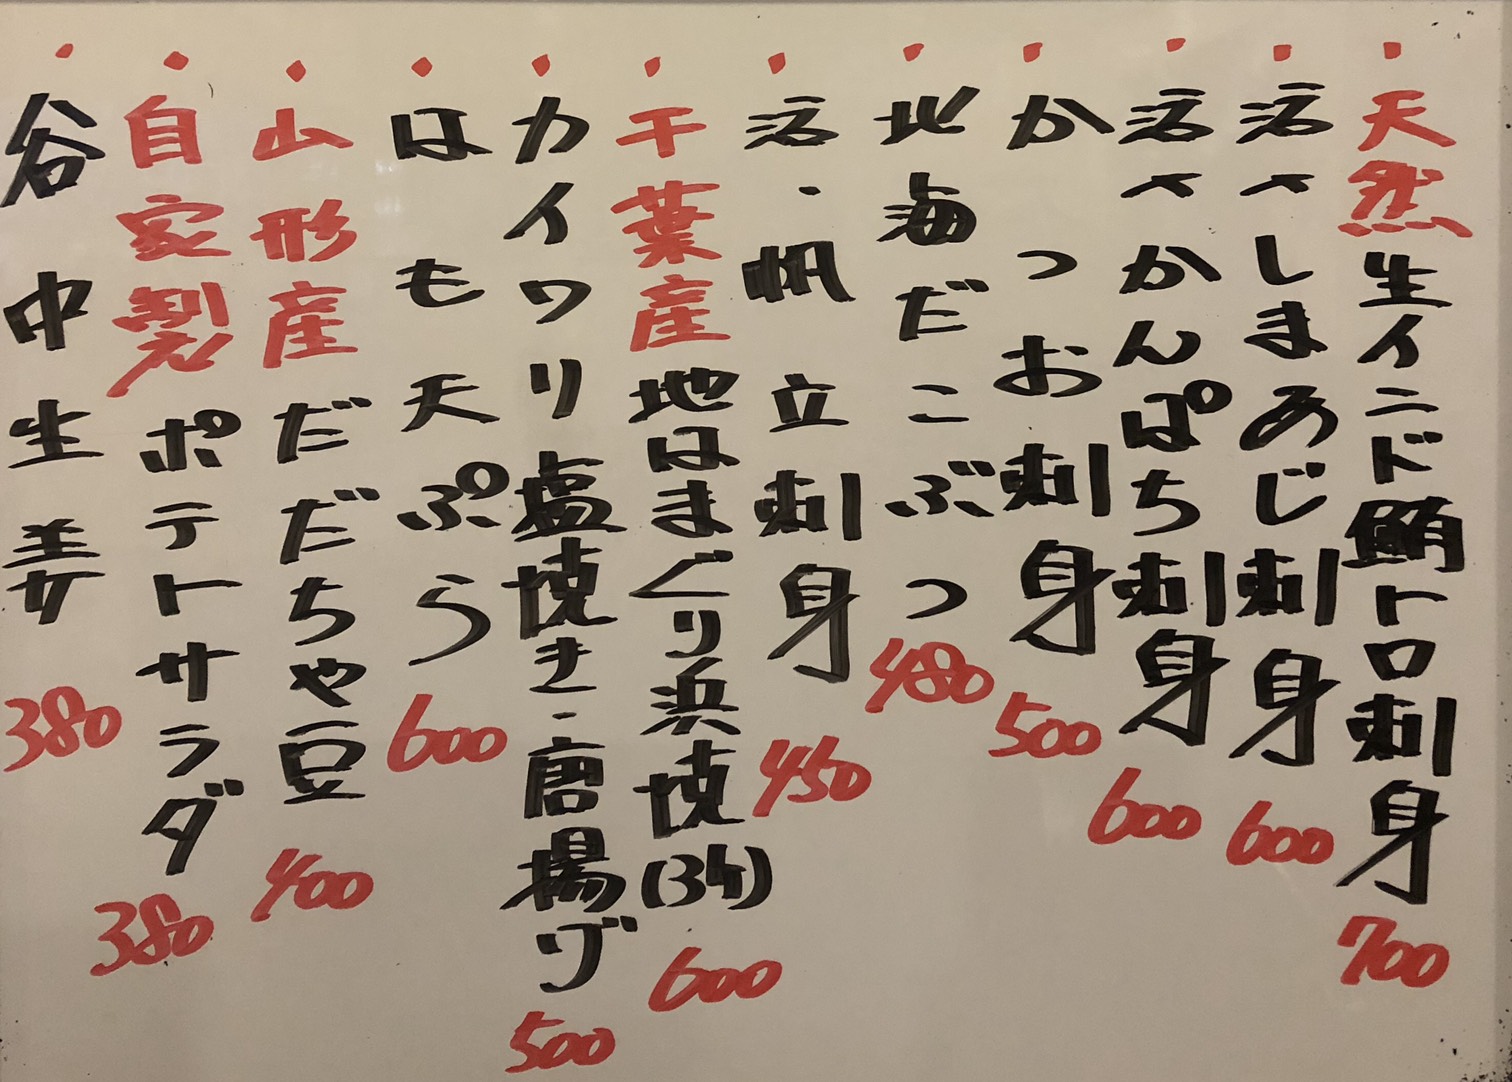 ・天然生インド鮪トロ刺身 700
・活〆しまあじ刺身 600
・活〆かんぱち刺身 600
・かつお刺身 500
・北海だこぶつ 480
・活・帆立刺身 450
・千葉産地はまぐり浜焼(3ケ) 600
・カイワリ塩焼き・唐揚げ 500
・はも天ぷら 600
・山形産だだちゃ豆 400
・自家製ポテトサラダ 380
・谷中生姜 380